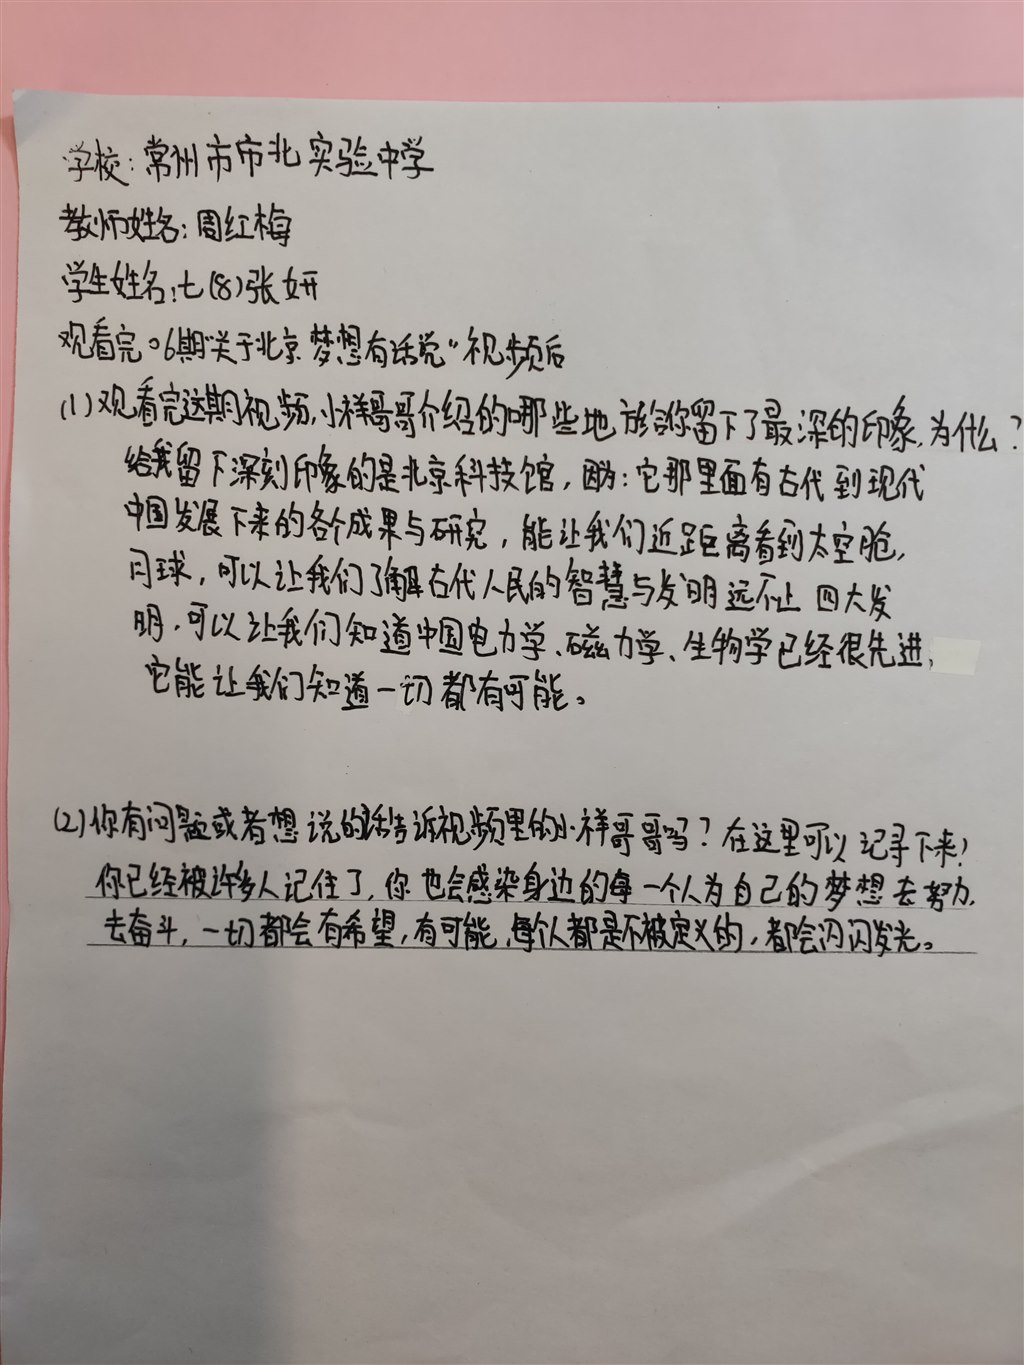 学校:常州市市北实验中学
教师姓名:周红梅
学生姓名:七(8)张妍
观看完。6期"关于北京 梦想有话说"视频后
(1)观看完这期视频,小样哥哥介绍的哪些地方给你留下了最深的印象,为什么?
给我留下深刻印象的是北京科技馆,因为:它那里面有古代到现代
中国发展下来的各个成果与研究,能让我们近距离看到太空舱,
月球,可以让我们了解古代人民的智慧与发明远不止 四大发
明,可以让我们知道中国电力学、磁力学、生物学已经很先进,
它能让我们知道一切都有可能。
(2)你有问题或者想说的话告诉视频里的小样哥哥吗?在这里可以记录下来!
你已经被许多人记住了,你也会感染身边的每一个人为自己的梦想去努力,
去奋斗,一切都会有希望,有可能,每个人都是不被定义的,都会闪闪发光。